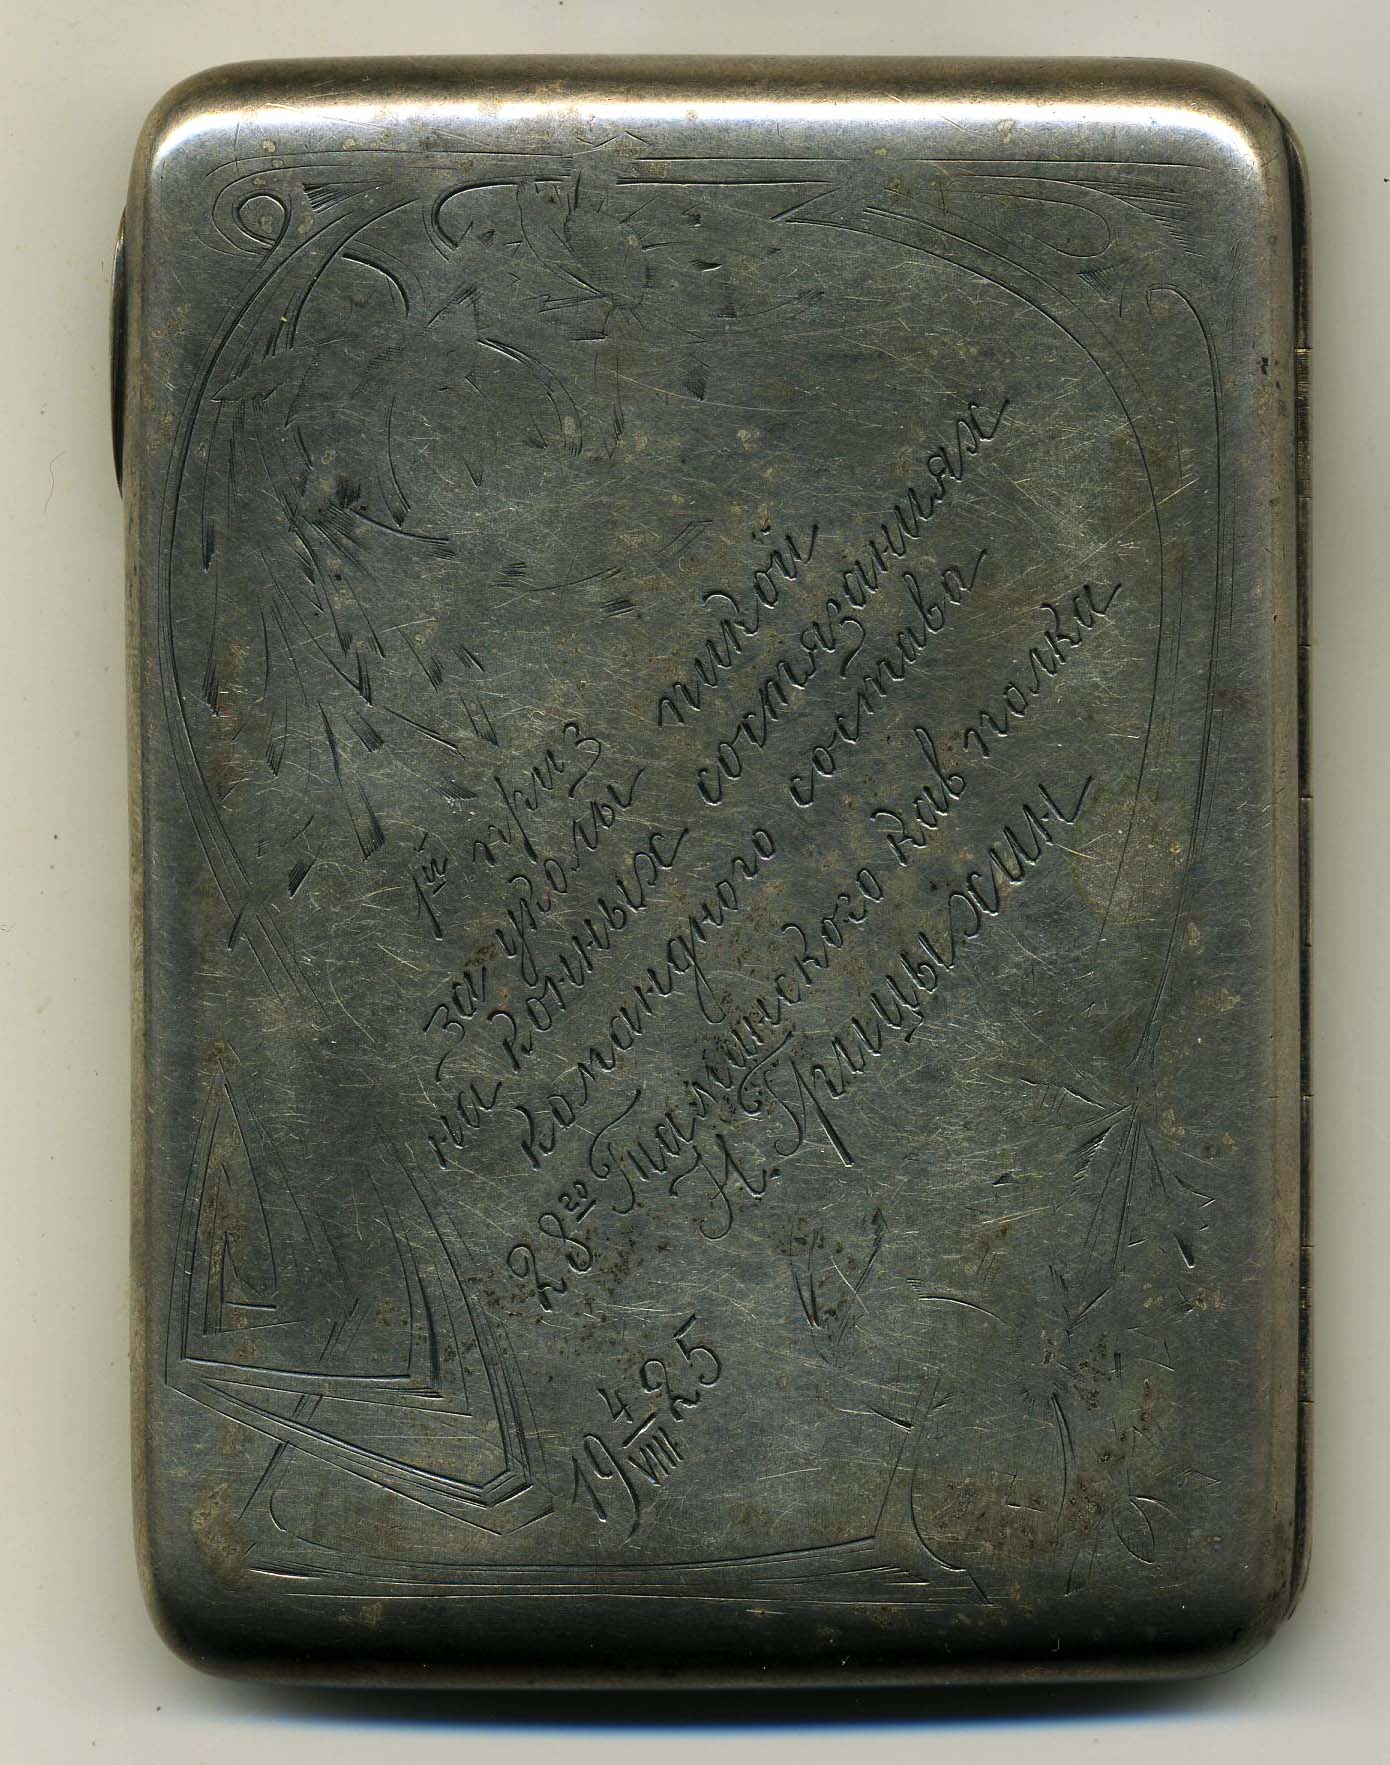 1й приз
за уколы пикой
на конных состязаниях
командного состава
28го Таманского кав полка
Н. Грицыхин
19 4/VIII 25